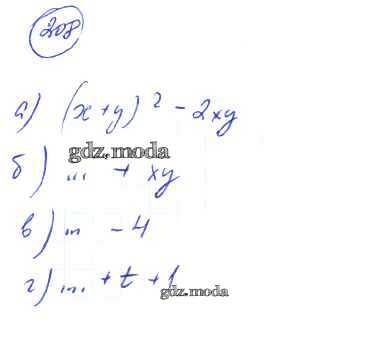 208
а) (x+y)² - 2xy
gdz.moda
б) ... + xy
в) ... - 4
г) ... + t + 1
gdz.moda